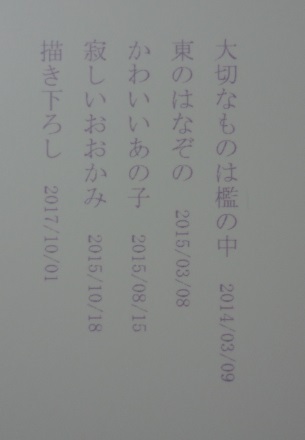 大切なものは檻の中 2014/03/09
東のはなぞの 2015/03/08
かわいいあの子 2015/08/15
寂しいおおかみ 2015/10/18
描き下ろし 2017/10/01